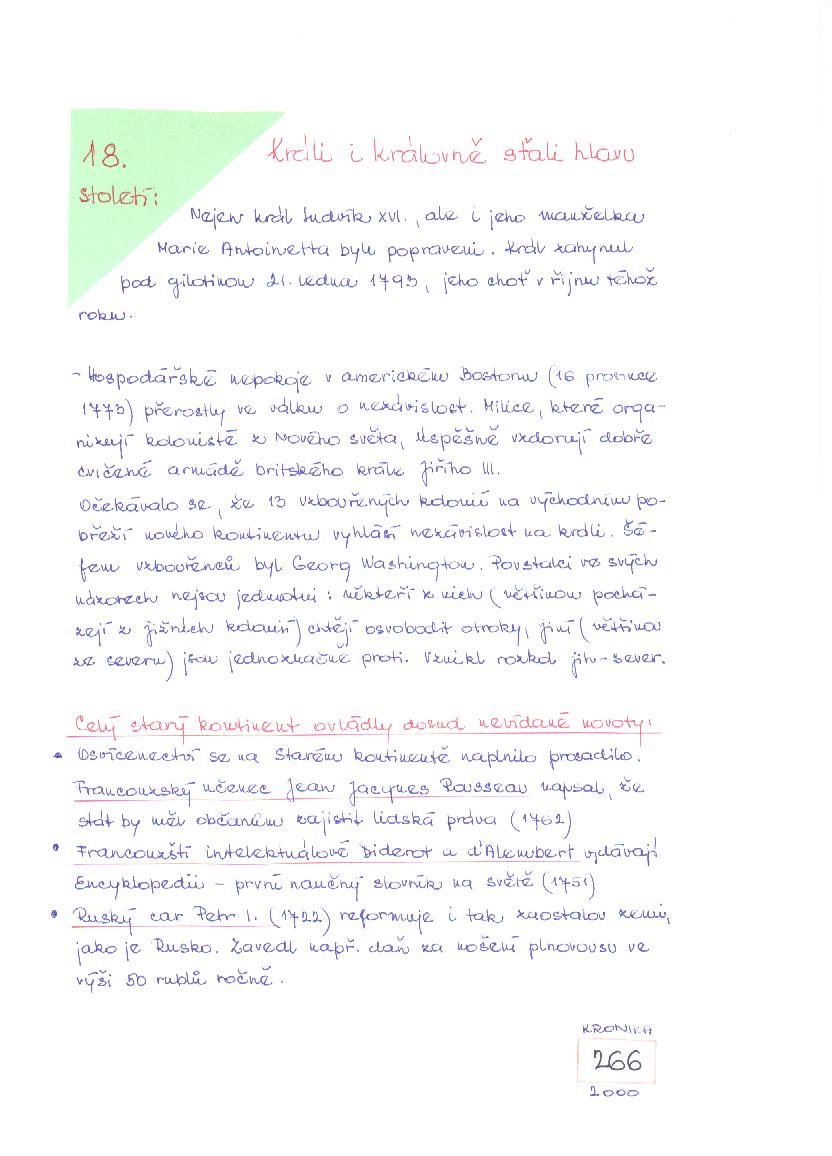 18.
století:
Králi i královně sťali hlavu
Nejen král Ludvík XVI., ale i jeho manželka
Marie Antoinetta byli popraveni. Král zahynul
pod gilotinou 21. ledna 1793, jeho choť v říjnu téhož
roku.
- Hospodářské nepokoje v americkém Bostonu (16 prosince
1773) přerostly ve válku o nezávislost. Milice, které orga-
nizují kolonisté z Nového světa, úspěšně vzdorují dobře
cvičené armádě britského krále Jiřího III.
Očekávalo se, že 13 vzbouřených kolonií na východním po-
břeží nového kontinentu vyhlásí nezávislost na králi. Šé-
fem vzbouřenců byl Georg Washington. Povstalci ve svých
názorech nejsou jednotni: někteří z nich (většinou pochá-
zejí z jižních kolonií) chtějí osvobodit otroky, jiní (většina
ze severu) jsou jednoznačně proti. Vznikl rozkol jih-sever.
Celý starý kontinent ovládly dosud nevídané novoty:
• Osvícenectví se na Starém kontinentě naplnilo prosadilo.
Francouzský učenec Jean Jacques Rousseau napsal, že
stát by měl občanům zajistit lidská práva (1762)
• Francouzští intelektuálové Diderot a d'Alembert vydávají
Encyklopedii - první naučný slovník na světě (1751)
• Ruský car Petr I. (1722) reformuje i tak zaostalou zemi,
jako je Rusko. Zavedl např. daň za nošení plnovousu ve
výši 50 rublů ročně.
KRONIKA
266
2000